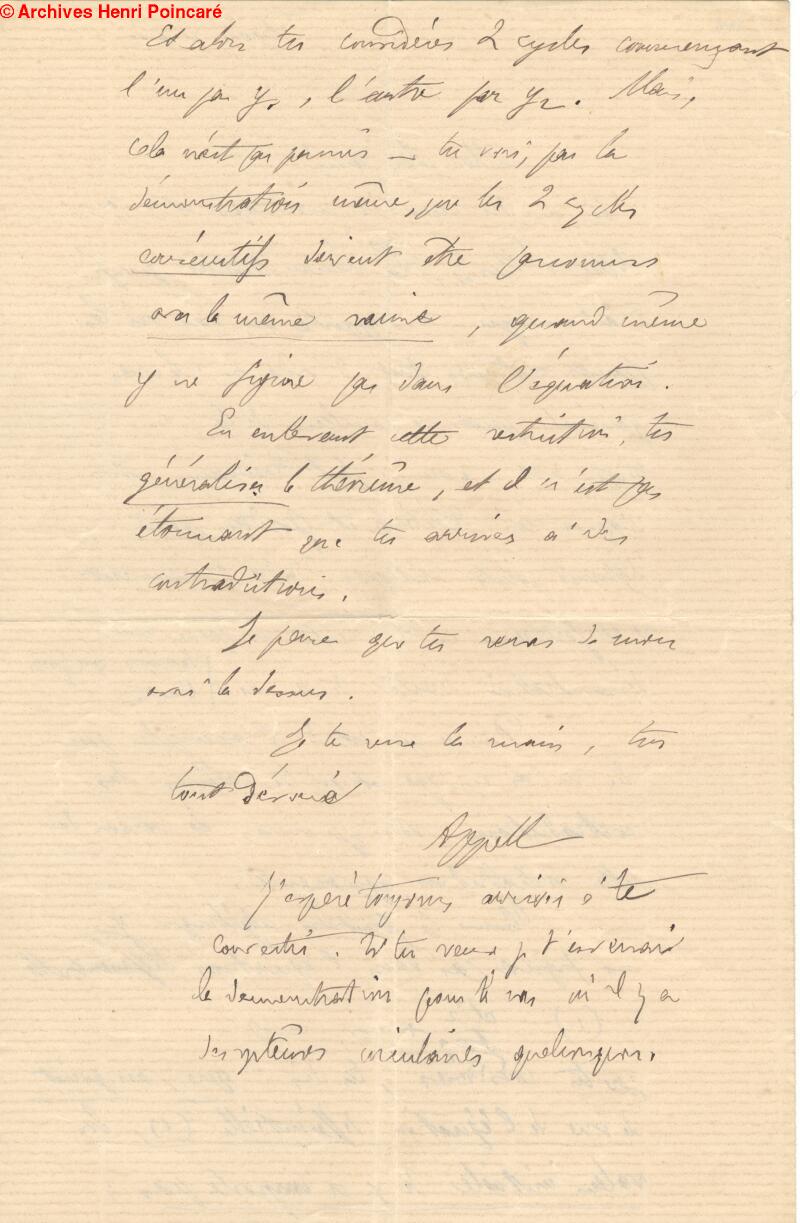 © Archives Henri Poincaré
Et alors tu considères 2 cycles commençant
l'un par y₁, l'autre par y₂. Mais,
cela n'est pas permis — tu vois, par la
démonstration même, que les 2 cycles
consécutifs doivent être parcourus
avec la même racine, quand même
y ne figure pas dans l'équation.
En enlevant cette restriction, tu
généralises le théorème, et il n'est pas
étonnant que tu arrives à des
contradictions.
Je pense que tu seras de mon
avis là dessus.
Je te serre la main, ton
tout dévoué
Appell
J'espère toujours arriver à te
convertir. Si tu veux je t'enverrai
la démonstration pour le cas où il y a
des systèmes circulaires quelconques.